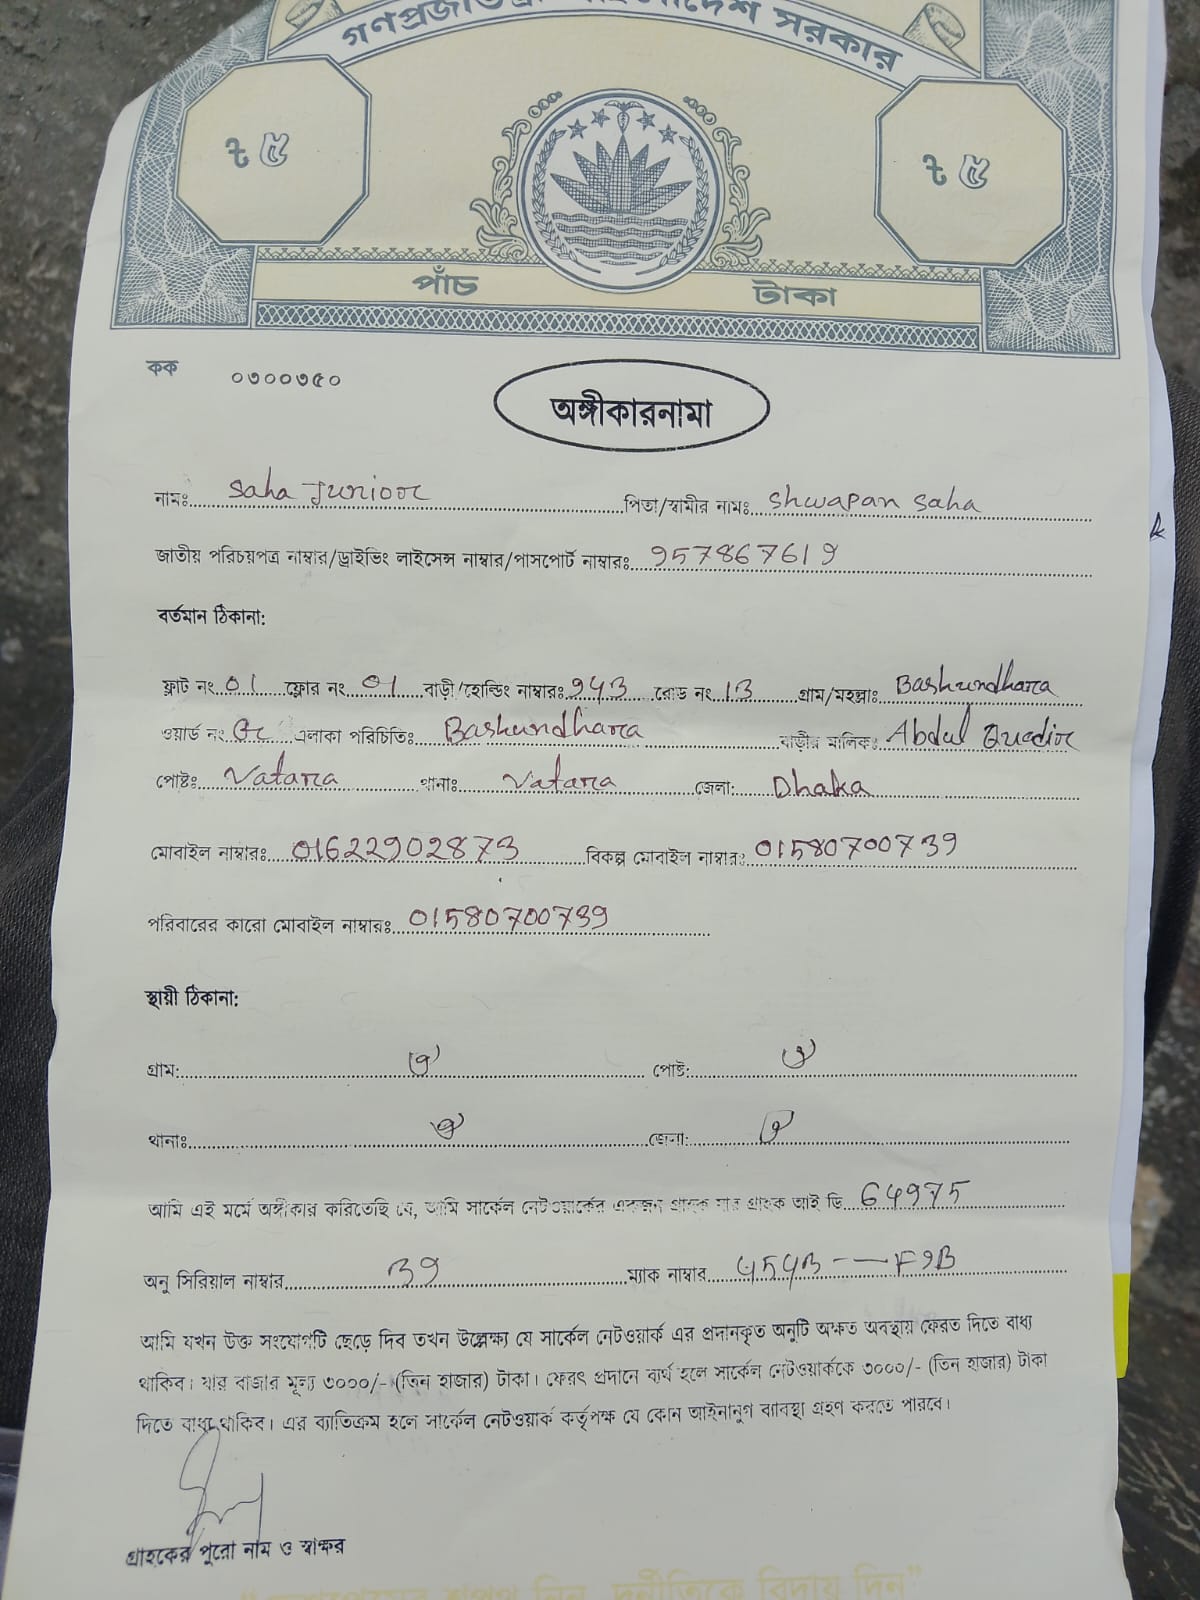 গণপ্রজাতন্ত্রী বাংলাদেশ সরকার
৳ ৫ ৳ ৫
পাঁচ টাকা
কক ০৩০০৩৫০
অঙ্গীকারনামা
নামঃ Saha Junior পিতা/স্বামীর নামঃ Shwapan Saha
জাতীয় পরিচয়পত্র নাম্বার/ড্রাইভিং লাইসেন্স নাম্বার/পাসপোর্ট নাম্বারঃ 957867619
বর্তমান ঠিকানা:
ফ্লাট নং 01 ফ্লোর নং 01 বাড়ী/হোল্ডিং নাম্বারঃ 943 রোড নং 13 গ্রাম/মহল্লাঃ Bashundhara
ওয়ার্ড নং এলাকা পরিচিতিঃ Bashundhara বাড়ীর মালিকঃ Abdul Quadir
পোষ্টঃ Vatara থানাঃ Vatara জেলা: Dhaka
মোবাইল নাম্বারঃ 01622902873 বিকল্প মোবাইল নাম্বারঃ 01580700739
পরিবারের কারো মোবাইল নাম্বারঃ 01580700739
স্থায়ী ঠিকানা:
গ্রাম: পোষ্ট:
থানাঃ জেলা:
আমি এই মর্মে অঙ্গীকার করিতেছি যে, আমি সার্কেল নেটওয়ার্কের একজন গ্রাহক যার গ্রাহক আই ডি 64975
অনু সিরিয়াল নাম্বার 39 ম্যাক নাম্বার 4543 -- F9B
আমি যখন উক্ত সংযোগটি ছেড়ে দিব তখন উল্লেক্ষ্য যে সার্কেল নেটওয়ার্ক এর প্রদানকৃত অনুটি অক্ষত অবস্থায় ফেরত দিতে বাধ্য
থাকিব। যার বাজার মূল্য ৩০০০/- (তিন হাজার) টাকা। ফেরৎ প্রদানে ব্যর্থ হলে সার্কেল নেটওয়ার্ককে ৩০০০/- (তিন হাজার) টাকা
দিতে বাধ্য থাকিব। এর ব্যতিক্রম হলে সার্কেল নেটওয়ার্ক কর্তৃপক্ষ যে কোন আইনানুগ ব্যাবস্থা গ্রহণ করতে পারবে।
গ্রাহকের পুরো নাম ও স্বাক্ষর
শপথ নিন, দুর্নীতিকে বিদায় দিন”